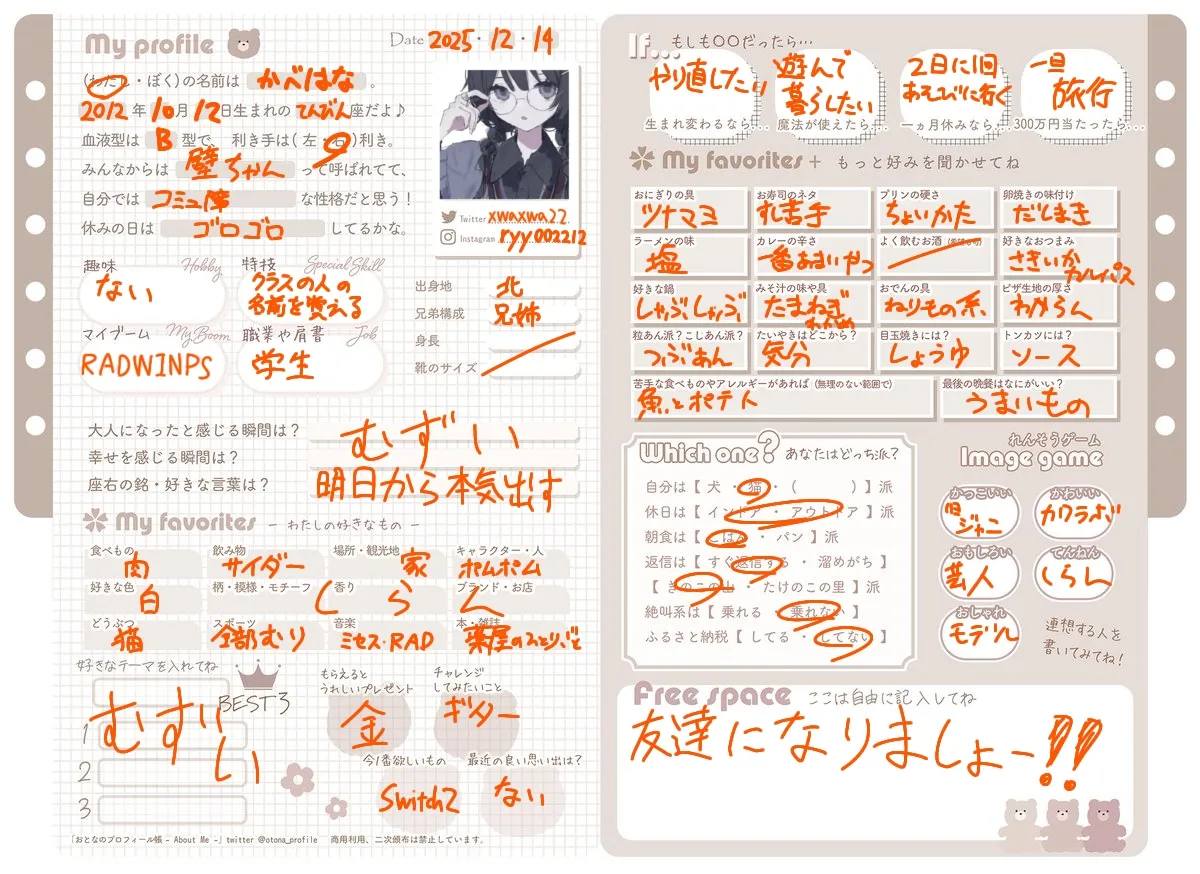 My profile
Date 2025・12・14
(わたし・ぼく)の名前は かべはな 。
2012年10月12日生まれの てんびん座だよ♪
血液型は B 型で、 利き手は(左・右)利き。
みんなからは 壁ちゃん って呼ばれてて、
自分では コミュ障 な性格だと思う！
休みの日は ゴロゴロ してるかな。
Twitter xwaxwa22
Instagram ryy002212
趣味 Hobby
ない
特技 Special Skill
クラスの人の
名前を覚える
マイブーム My Boom
RADWINPS
職業や肩書 Job
学生
出身地 北
兄弟構成 兄姉
身長
靴のサイズ
大人になったと感じる瞬間は？
幸せを感じる瞬間は？
むずい
座右の銘・好きな言葉は？ 明日から本気出す
My favorites － わたしの好きなもの －
食べもの 肉
飲み物 サイダー
場所・観光地 家
キャラクター・人 ポムポム
好きな色 白
柄・模様・モチーフ
香り
ブランド・お店
しらん
どうぶつ 猫
スポーツ 全部むり
音楽 ミセス・RAD
本・雑誌 薬屋のひとりごと
好きなテーマを入れてね
BEST3
1
2
3
むずいい
もらえると
うれしいプレゼント
金
チャレンジ
してみたいこと
ギター
今1番欲しいもの
Switch2
最近の良い思い出は？
ない
「おとなのプロフィール帳 - About Me -」twitter @otona_profile 商用利用、二次頒布は禁止しています。
If... もしも〇〇だったら…
やり直したい
生まれ変わるなら…
遊んで
暮らしたい
魔法が使えたら…
2日に1回
あそびに行く
一ヵ月休みなら…
一旦
旅行
300万円当たったら…
My favorites＋ もっと好みを聞かせてね
おにぎりの具 ツナマヨ
お寿司のネタ すし苦手
プリンの硬さ ちょいかた
卵焼きの味付け だしまき
ラーメンの味 塩
カレーの辛さ 一番あまいやつ
よく飲むお酒
好きなおつまみ さきいか
カルパス
好きな鍋 しゃぶしゃぶ
みそ汁の味や具 たまねぎ
わかめ
おでんの具 ねりもの系
ピザ生地の厚さ わからん
粒あん派？こしあん派？ つぶあん
たいやきはどこから？ 気分
目玉焼きには？ しょうゆ
トンカツには？ ソース
苦手な食べものやアレルギーがあれば (無理のない範囲で)
魚とポテト
最後の晩餐はなにがいい？
うまいもの
Which one? あなたはどっち派？
自分は【 犬 ・ 猫 ・（ ）】派
休日は【 インドア ・ アウトドア 】派
朝食は【 ごはん ・ パン 】派
返信は【 すぐ返信する ・ 溜めがち 】
【 きのこの山 ・ たけのこの里 】派
絶叫系は【 乗れる ・ 乗れない 】
ふるさと納税【 してる ・ してない 】
れんそうゲーム
Image game
かっこいい
旧
ジャニ
かわいい
カワラボ
おもしろい
芸人
てんねん
しらん
おしゃれ
モデル
連想する人を
書いてみてね！
Free space ここは自由に記入してね
友達になりましょー!!